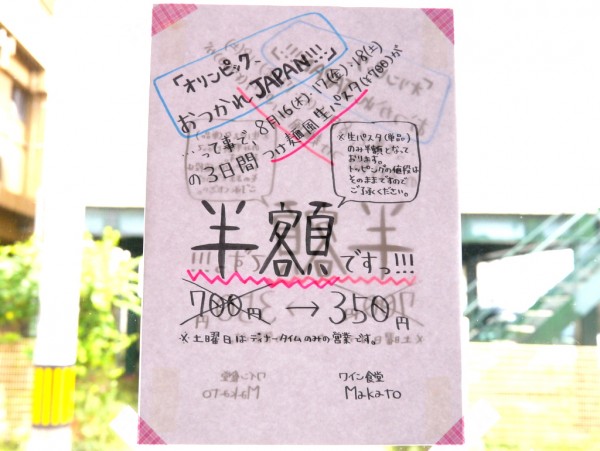 「オリンピック、
おつかれJAPAN!!!」
…って事で、8月16(木)・17(金)・18(土)
の3日間つけ麺風生パスタ(¥700)が
※生パスタ(単品)
のみ半額となって
おります。
トッピングの値段は
そのままですので
ご了承ください。
半額ですっ!!!
700円↔350円
※土曜日はディナータイムのみの営業です。
ワイン食堂
Makato